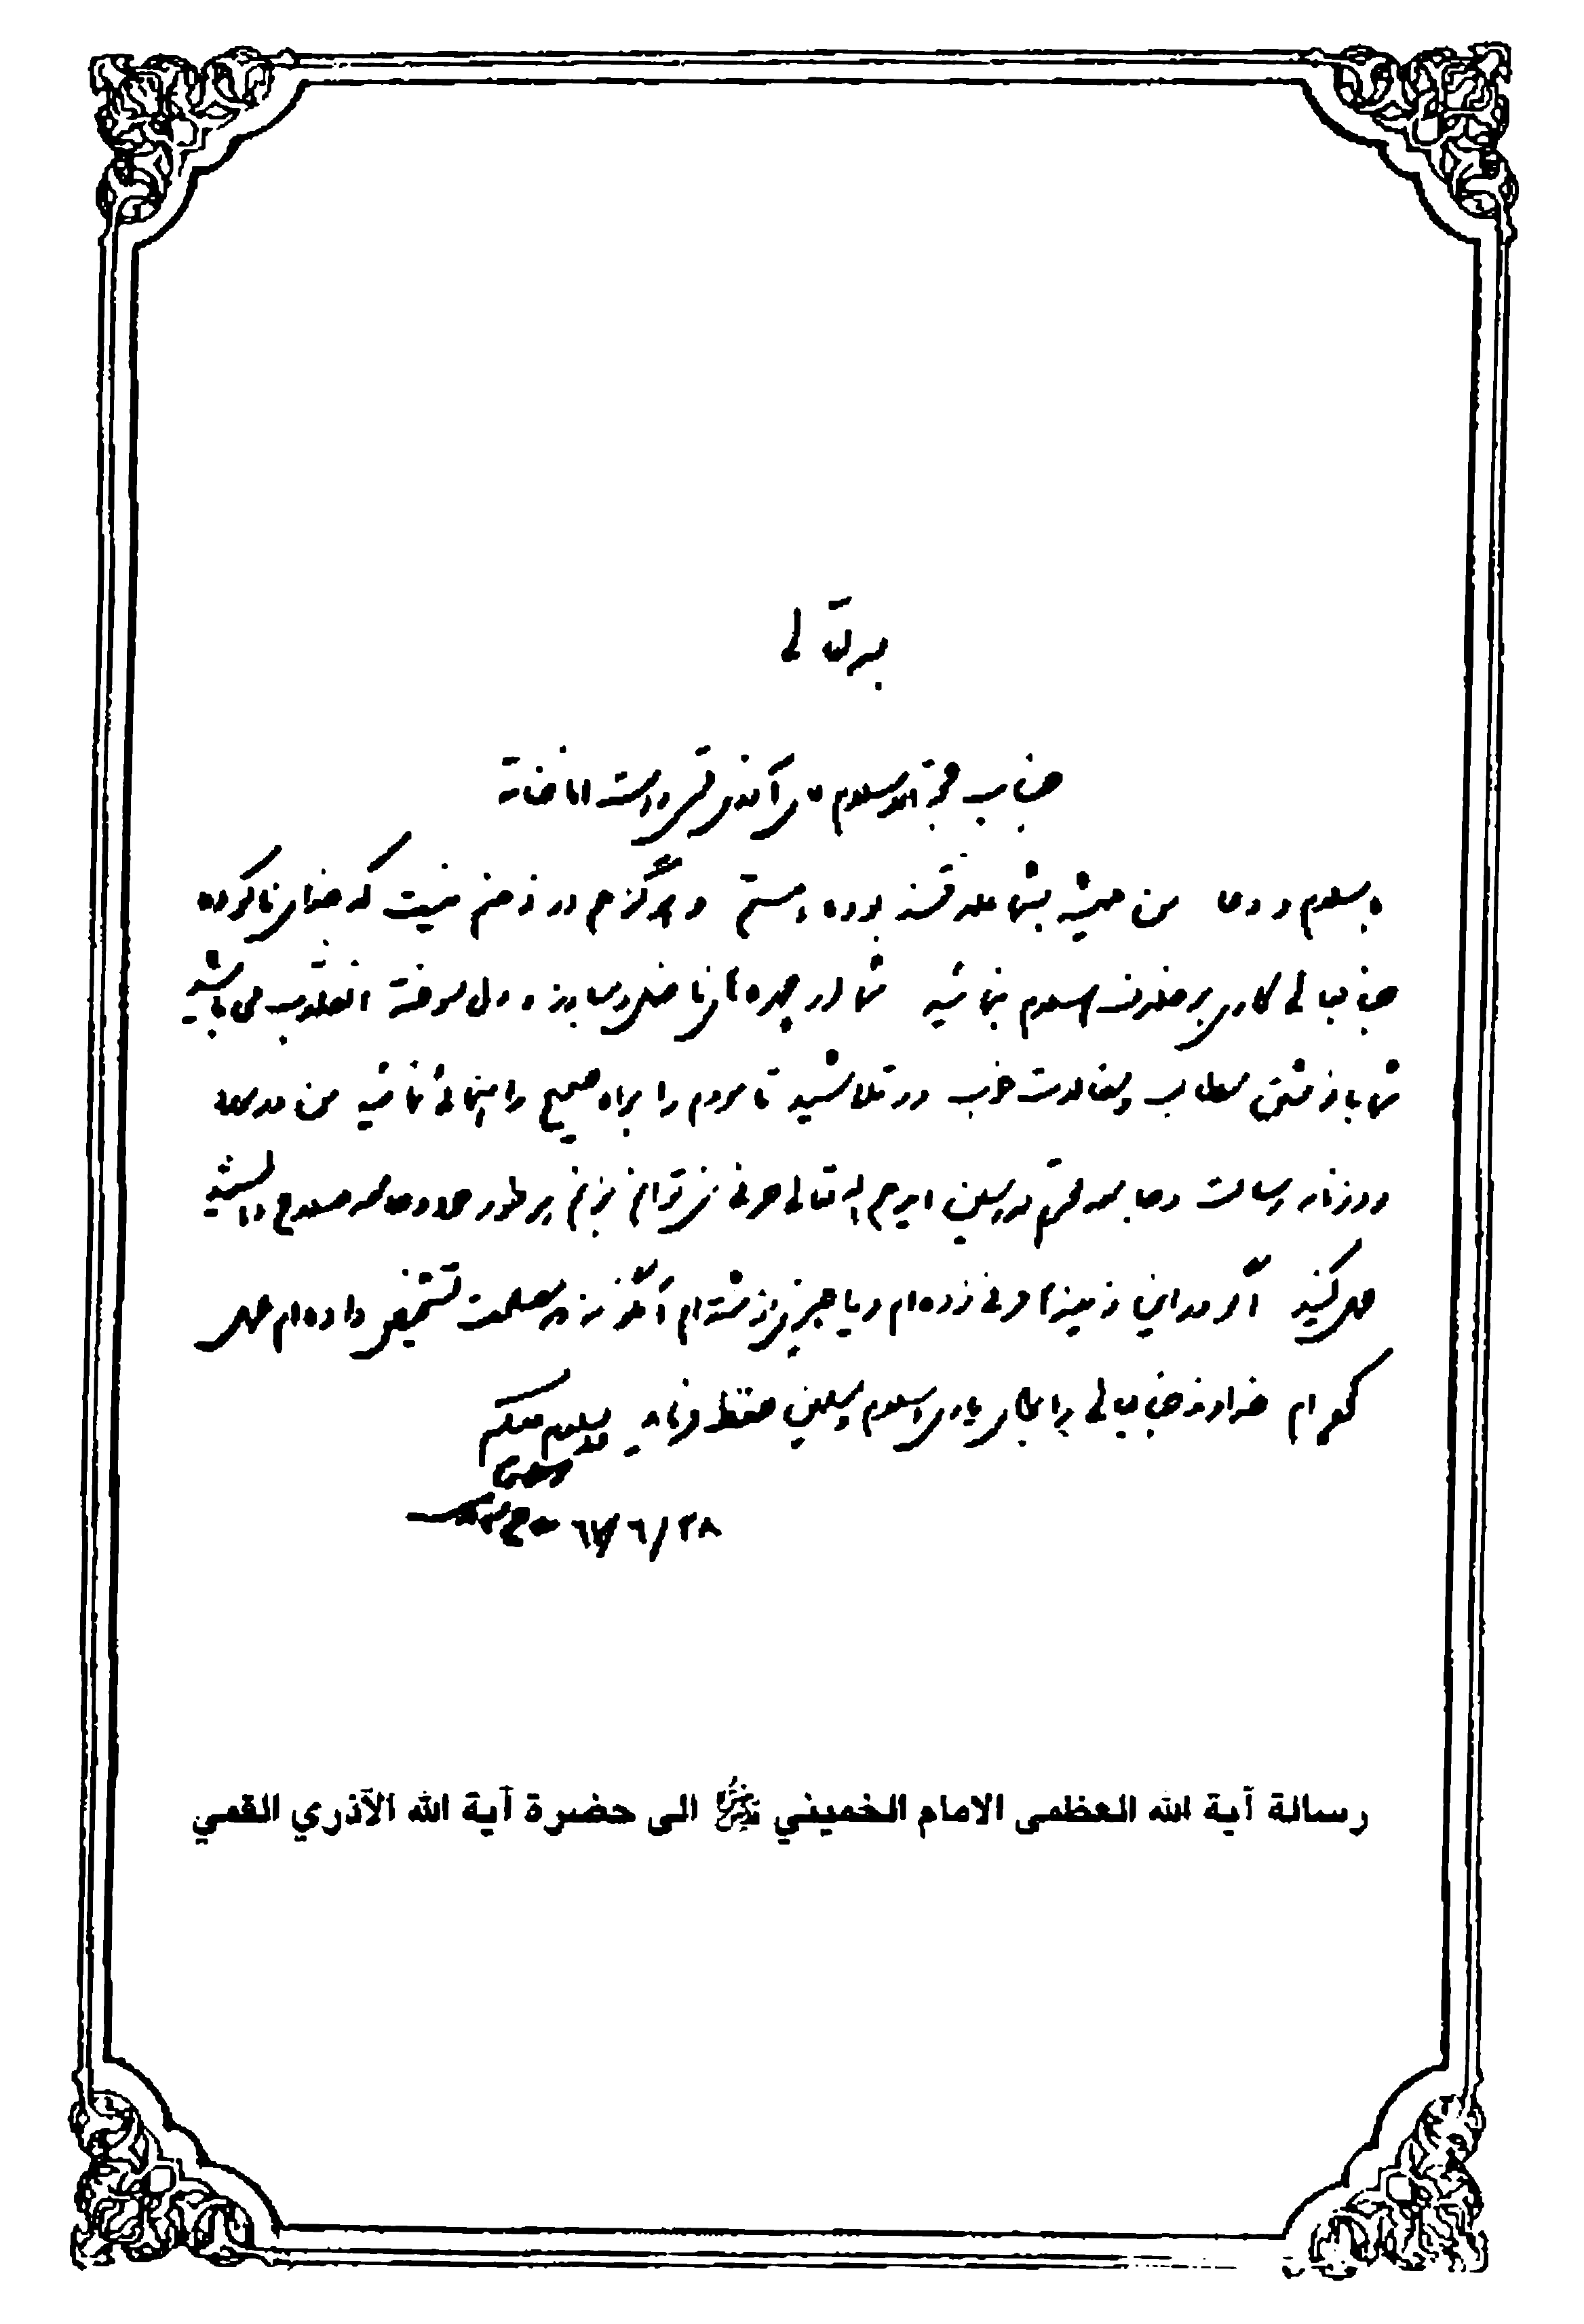 بسمه تعالی
جناب حجة الاسلام آقای آذری قمی دامت افاضاته
با سلام و دعا من همیشه بشما علاقمند بوده و هستم و هرگز هم در ذهنم نیست که خدای ناکرده
جنابعالی کاری برخلاف اسلام بنمائید شما از چهره‌های فاضل و مبارز و دل سوخته انقلاب می باشید
شما با نوشتن مطالب و مقالات خوب در تلاشید تا مردم را براه صحیح راهنمائی نمائید من درباره
روزنامه رسالت و جامعه محترم مدرسین ایدهم الله تعالی حرفی نمی توانم بزنم هر طور خود و جامعه صلاح دانستید
عمل کنید اگر در این زمینه‌ها حرفی زده‌ام و یا چیزی نوشته‌ام آنگونه که مصلحت تشخیص داده‌ام عمل
کرده‌ام خداوند جنابعالی را برای یاری اسلام و مسلمین حفظ فرماید والسلام علیکم
۲۸/۶/۶۷
رسالة آية الله العظمى الامام الخميني الى حضرة آية الله الآذري القمي